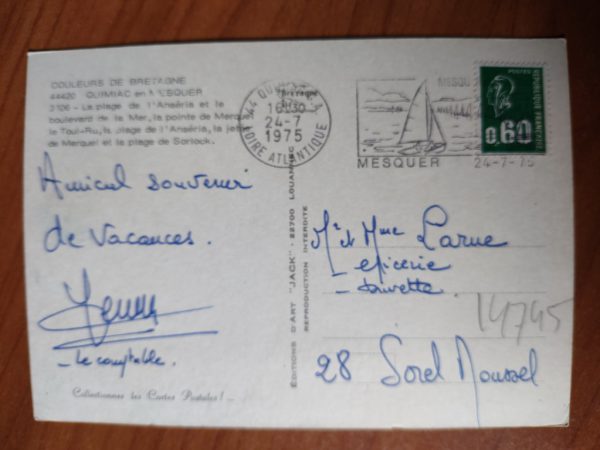 COULEURS DE BRETAGNE
44420 QUIMIAC en MESQUER
3106 - La plage de l'Ansèria et le
boulevard de la Mer, la pointe de Merquel,
le Toul-Ru, la plage de l'Ansèria, la jetée
de Merquel et la plage de Sorlock.
Amical souvenir
de Vacances.
- le comptable.
Collectionnez les Cartes Postales ! ...
EDITIONS D'ART "JACK" - 22700 LOUANNEC
REPRODUCTION INTERDITE
44
16H30
24-7
1975
LOIRE ATLANTIQUE
MESQUER
MESQU
24-7-75
POSTES
REPUBLIQUE FRANCAISE
0,60
Mr & Mme Larue
- épicerie
- buvette
28 Sorel Moussel
14745